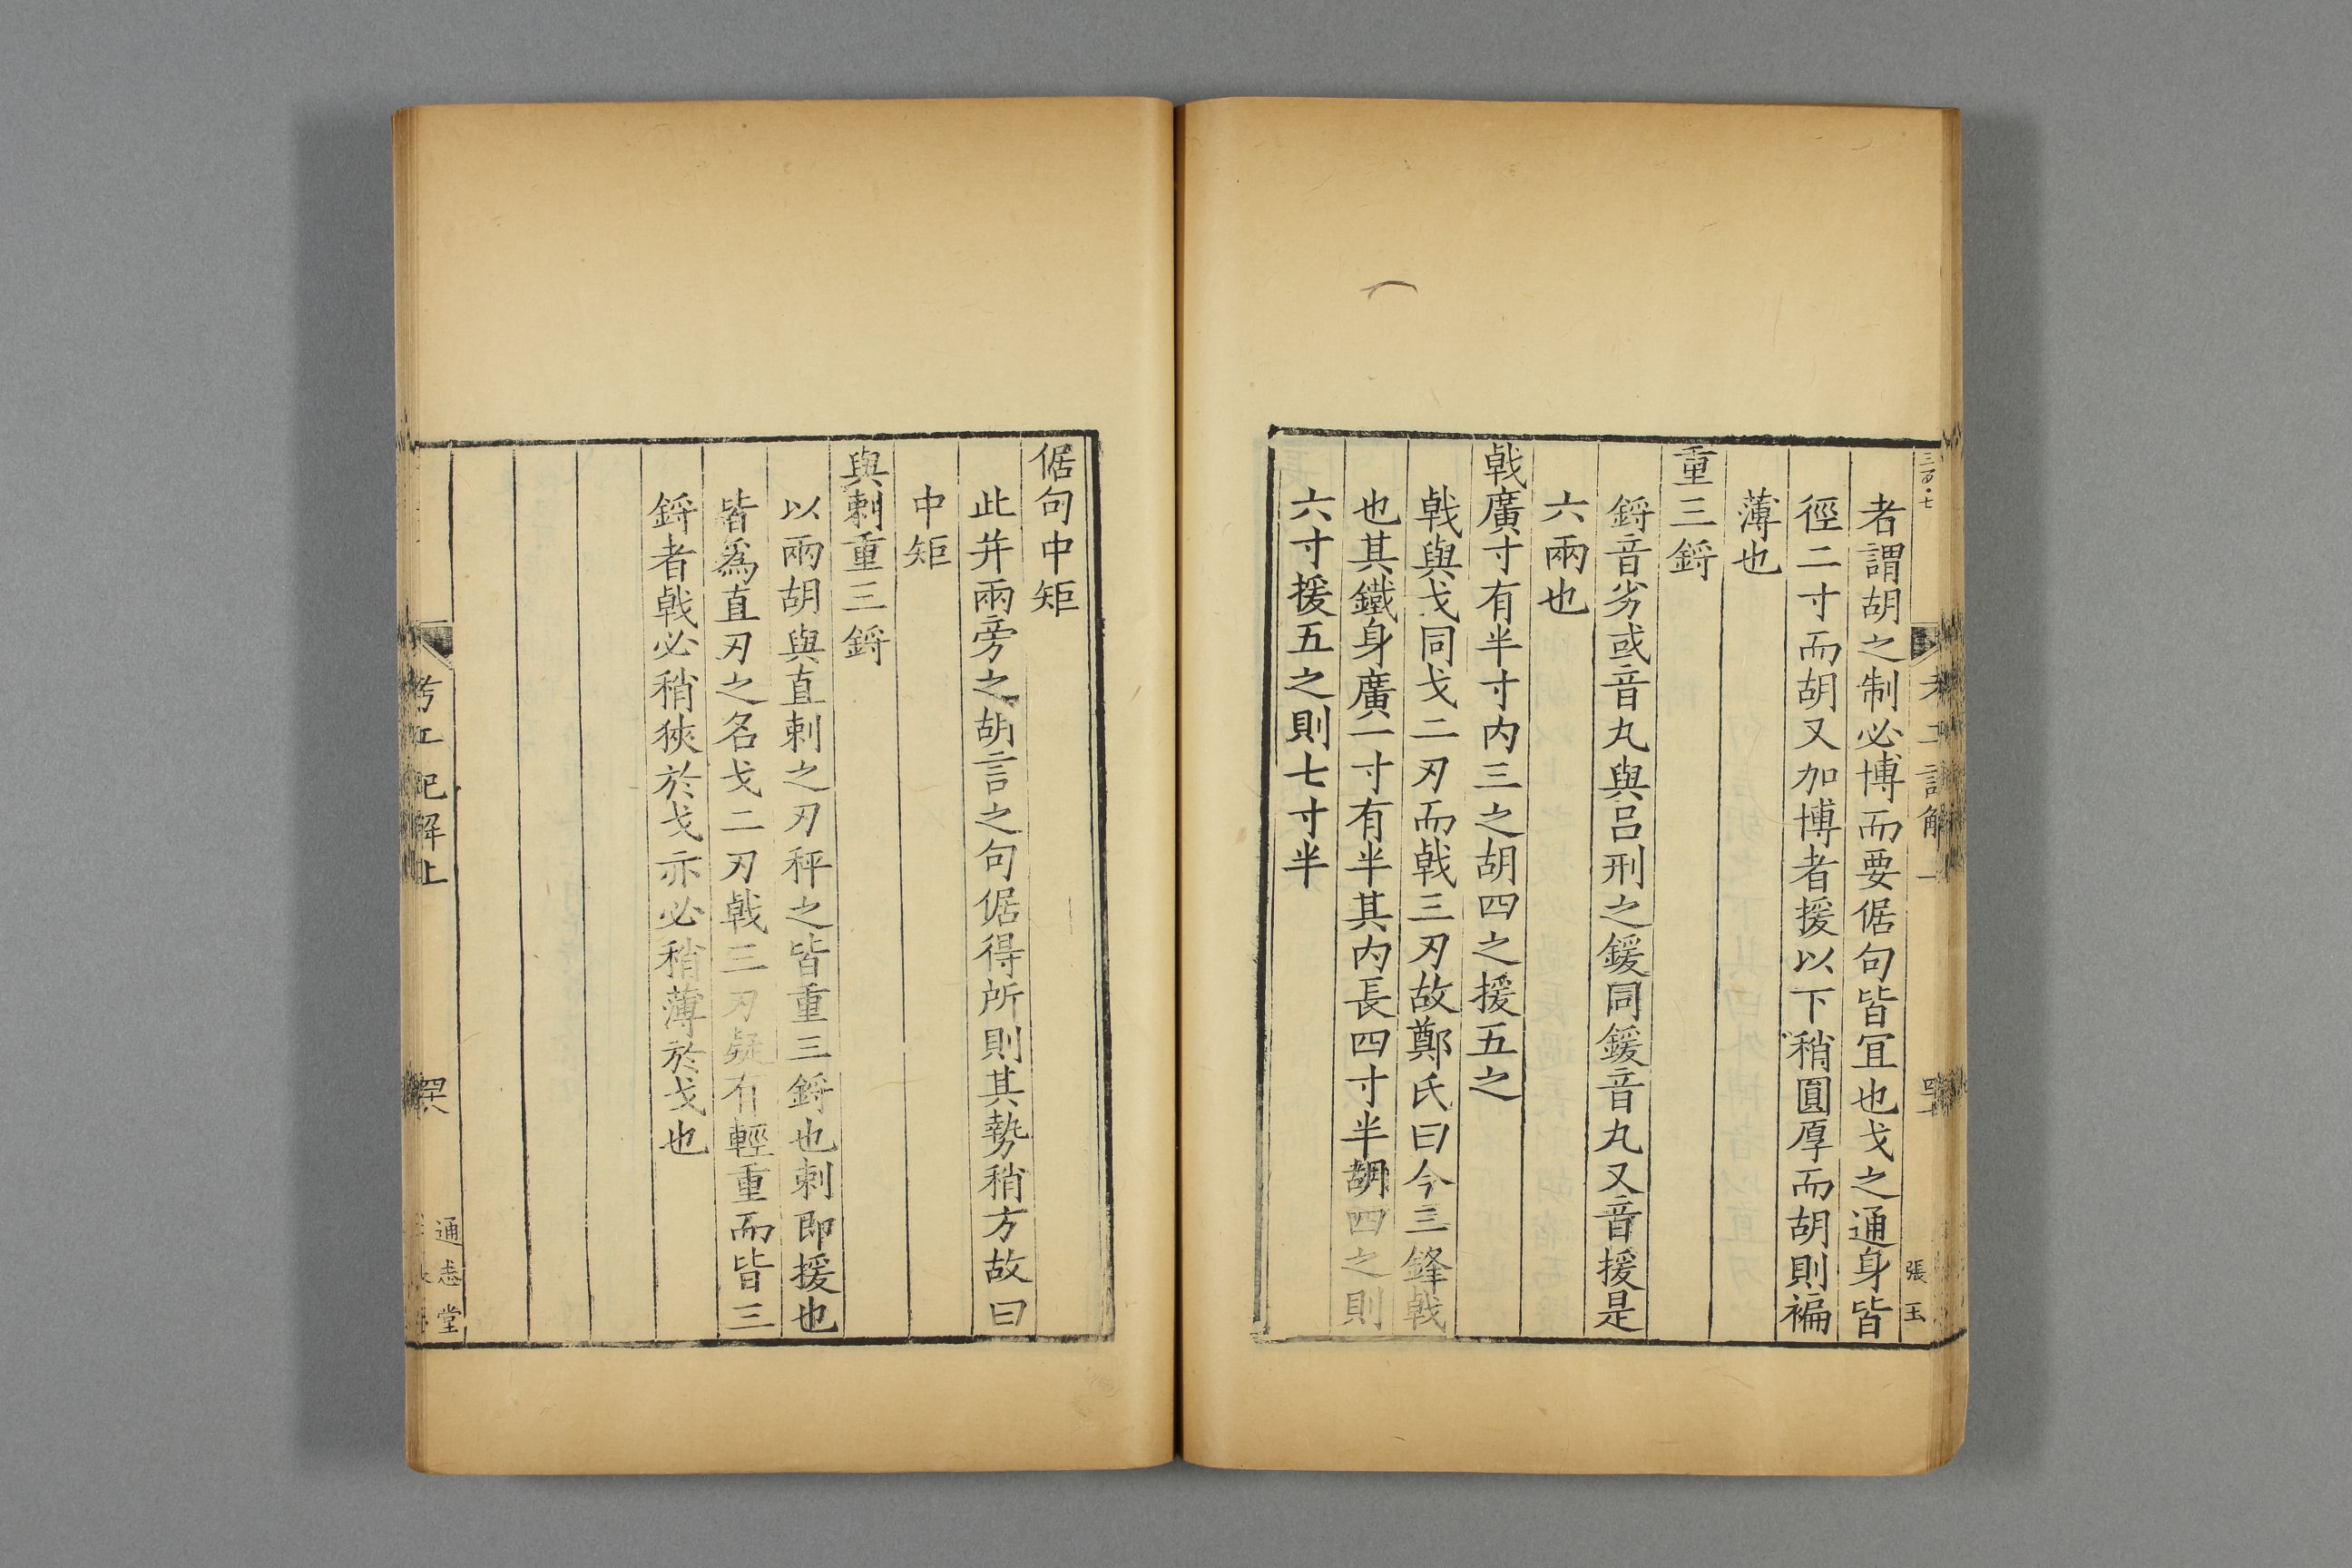 者謂胡之制必博而要倨句皆宜也戈之通身皆
徑二寸而胡又加博者援以下稍圓厚而胡則褊
薄也
重三鋝
鋝音劣或音丸與呂刑之鍰同鍰音丸又音援是
六兩也
戟廣寸有半寸内三之胡四之援五之
戟與戈同戈二刃而戟三刃故鄭氏曰今三鋒戟
也其鐵身廣一寸有半其内長四寸半胡四之則
六寸援五之則七寸半
張玉
倨句中矩
此并兩旁之胡言之句倨得所則其勢稍方故曰
中矩
與刺重三鋝
以兩胡與直刺之刃秤之皆重三鋝也刺即援也
皆爲直刃之名戈二刃戟三刃疑有輕重而皆三
鋝者戟必稍狹於戈亦必稍薄於戈也
考工記解上
通志堂